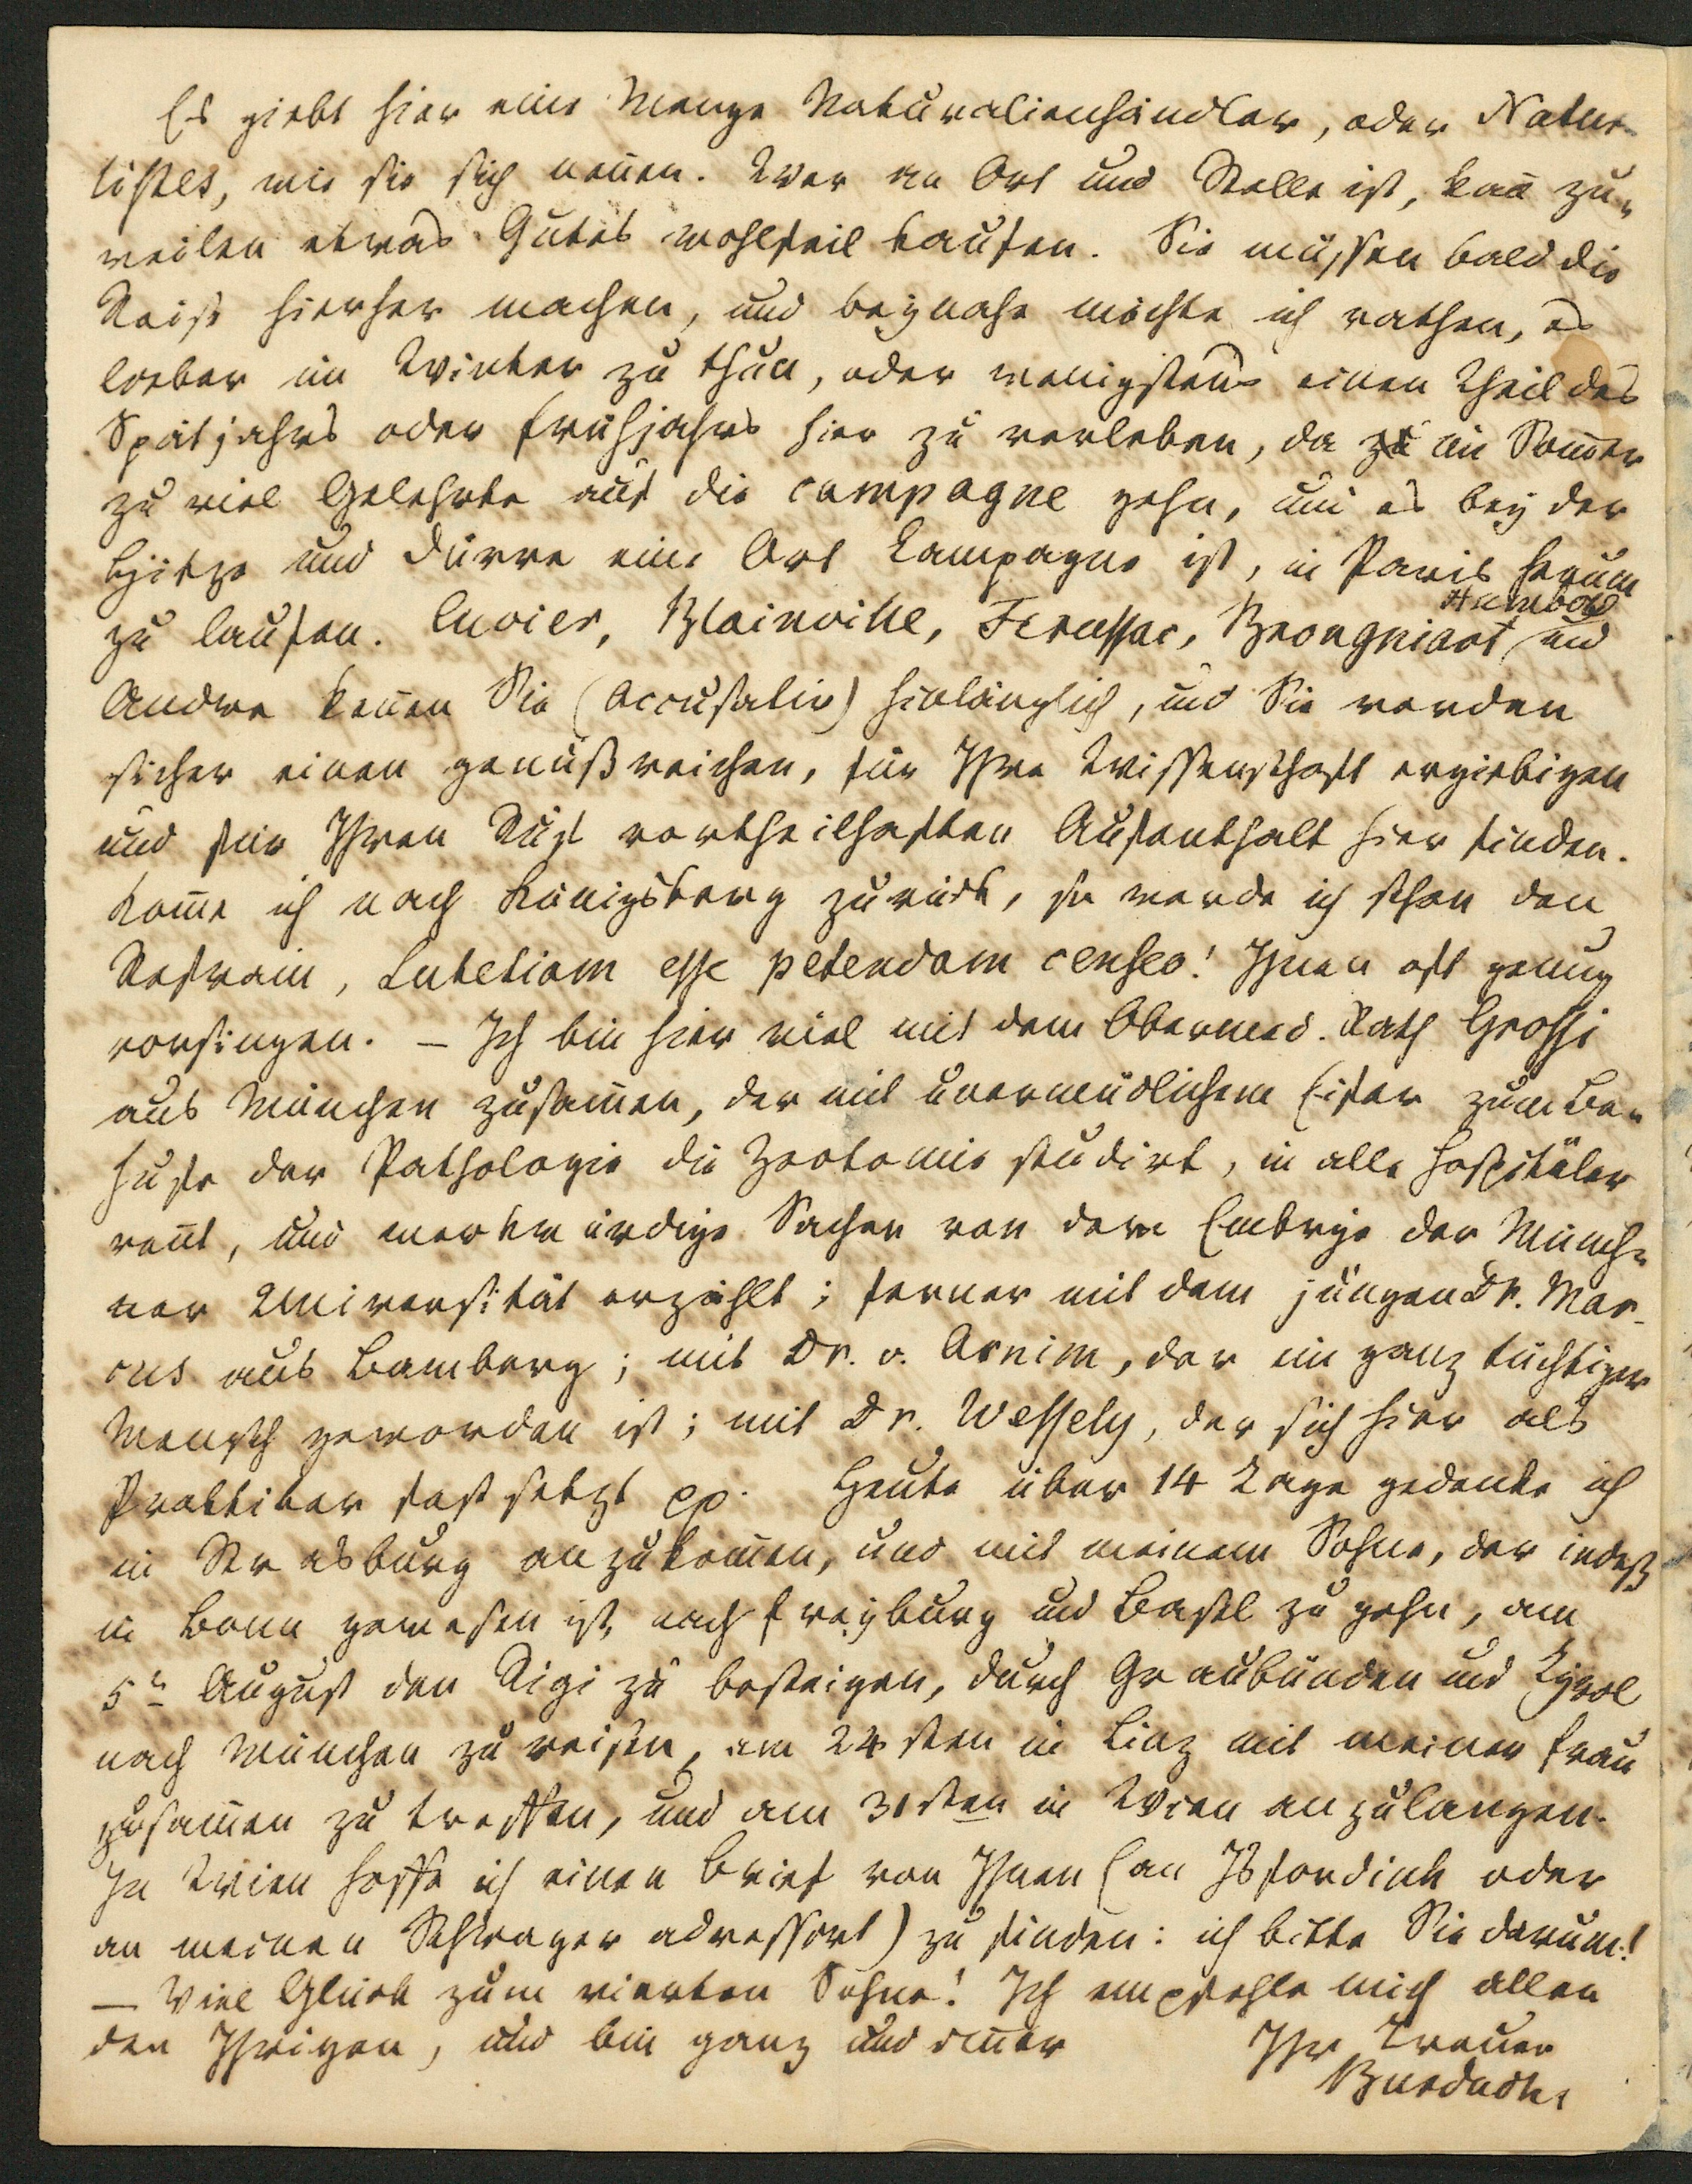 Es giebt hier eine Menge Naturalienhändler, oder Natura-
listes, wie sie sich nen̄en. Wer an Ort und Stelle ist, kan̄ zu-
weilen etwas Gutes wohlfeil kaufen. Sie müssen bald die
Reise hierher machen, und beynahe möchte ich rathen, es
lieber im Winter zu thun, oder wenigstens einen Theil des
Spätjahrs oder Frühjahrs hier zu verleben, da im Som̄er
zu viel Gelehrte auf die campagne gehn, und es bey der
Hitze und Dürre eine Art Campagne ist, in Paris herum
zu laufen. Cuvier, Blainville, Ferussac, Brongniart, Humbold und
Andre ken̄en Sie (Accusativ) hinlänglich, und Sie werden
sicher einen genußreichen, für Ihre Wissenschaft ergiebigen
und für Ihren Ruf vortheilhaften Aufenthalt hier finden.
Kom̄e ich nach Königsberg zurück, so werde ich schon den
Refrain, Lutetiam esse petendam censeo! Ihnen oft genug
vorsingen. – Ich bin hier viel mit dem Obermed. Rath Grossi
aus München zusam̄en, der mit unermüdlichem Eifer zum Be-
hufe der Pathologie die Zootomie studirt, in alle Hospitäler
ren̄t, und merkwürdige Sachen von dem Embryo der Münch-
ner Universität erzählt; ferner mit dem jungen Dr. Mar-
cus aus Bamberg; mit Dr. v. Arnim, der ein ganz tüchtiger
Mensch geworden ist; mit Dr. Wessely, der sich hier als
Praktiker fest setzt pp. Heute über 14 Tage gedenke ich
in Strasburg anzukom̄en, und mit meinem Sohne, der indeß
in Bonn gewesen ist, nach Freyburg und Basel zu gehn, am
5n August den Rigi zu besteigen, durch Graubünden und Tyrol
nach München zu reisen, am 24sten in Linz mit meiner Frau
zusam̄en zu treffen, und am 31sten in Wien anzulangen.
In Wien hoffe ich einen Brief von Ihnen (an Isfordink oder
an meinen Schwager adressirt) zu finden: ich bitte Sie darum!
– Viel Glück zum vierten Sohne! Ich empfehle mich allen
den Ihrigen, und bin ganz und im̄er
Ihr treuer
Burdach